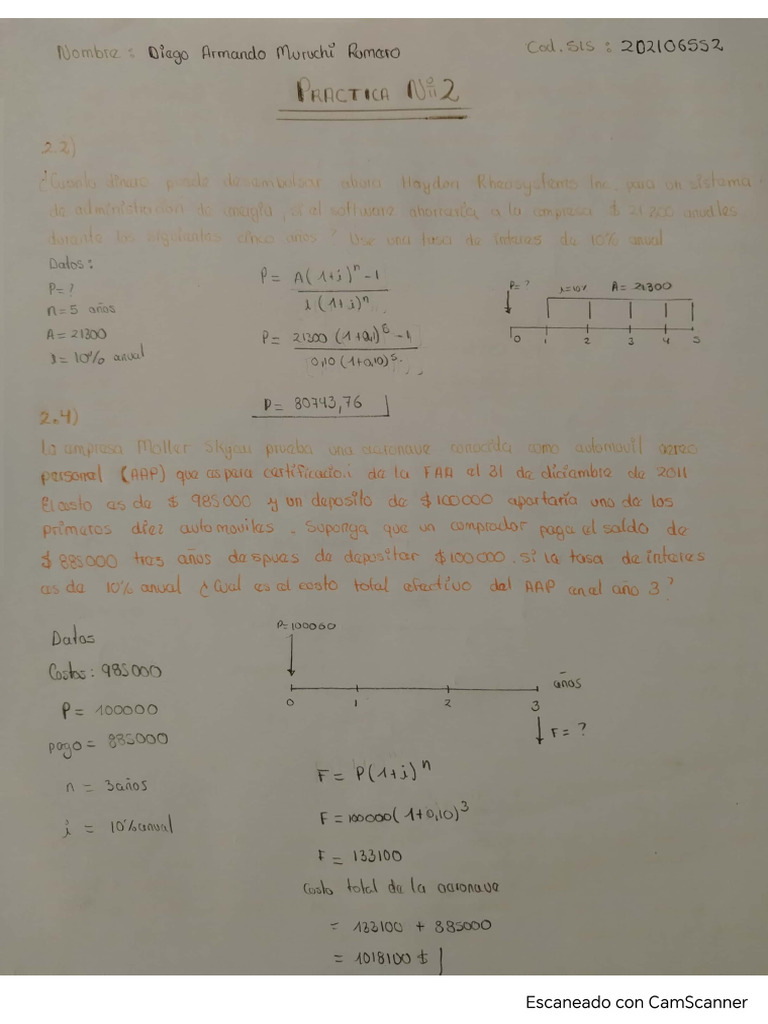 Nombre : Diego Armando Muruchi Romero
Cod. SIS : 202106552
PRACTICA Nº 2
2.2)
¿Cuanto dinero puede desembolsar ahora Haydon Rheosystems Inc. para un sistema
de administracion de energia, si el software ahorraria a la empresa $ 21 300 anuales
durante los siguientes cinco años? Use una tasa de interes de 10% anual
Datos :
P= ?
n= 5 años
A= 21300
i= 10% anual
P= A(1+i)^n -1
i(1+i)^n
P= 21300 (1+0,1)^5 -1
0,10 (1+0,10)^5
P= 80743,76
P= ? i=10% A= 21300
0 1 2 3 4 5
2.4)
La empresa Moller Skycar prueba una aeronave conocida como automovil aereo
personal (AAP) que espera certificacion de la FAA el 31 de diciembre de 2011
El costo es de $ 985000 y un deposito de $100000 apartaria uno de los
primeros diez automoviles . Suponga que un comprador paga el saldo de
$ 885000 tres años despues de depositar $100000. si la tasa de interes
es de 10% anual ¿Cual es el costo total efectivo del AAP en el año 3 ?
Datos
Costos: 985000
P = 100000
pago = 885000
n = 3años
i = 10% anual
P=100000
años
0 1 2 3
F= ?
F= P(1+i)^n
F= 100000(1+0,10)^3
F = 133100
Costo total de la aeronave
= 133100 + 885000
= 1018100 $
Escaneado con CamScanner